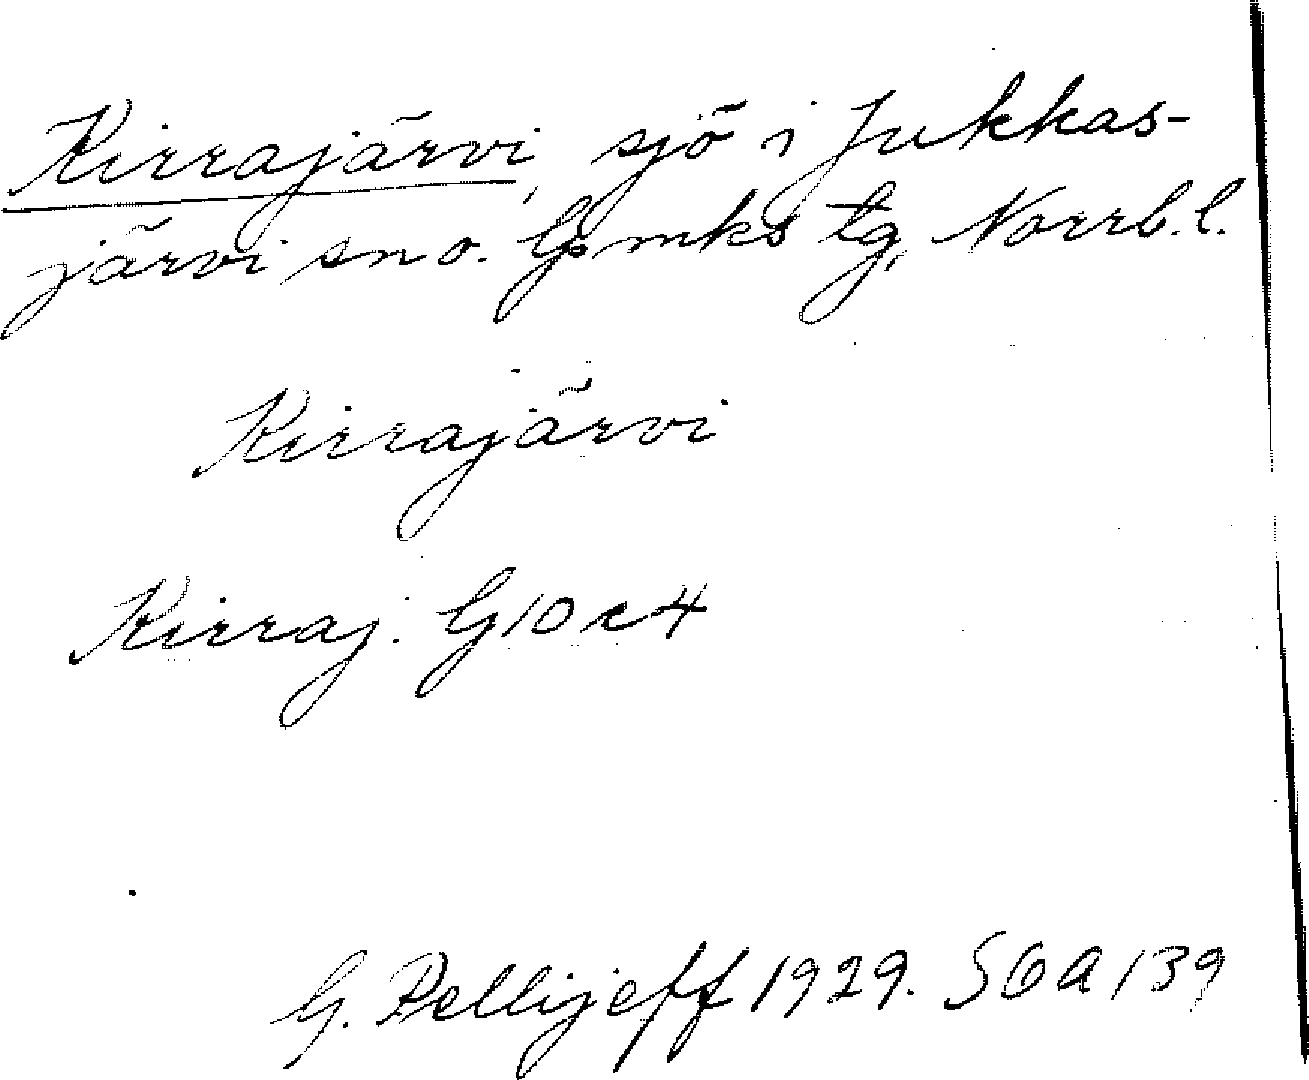 Kirrajärvi, sjö i Jukkas-
järvi sn o. lpmks tg, Norrb. l.
Kirrajärvi
Kirraj. G10c4
G. Pellijeff 1929. SOA 139